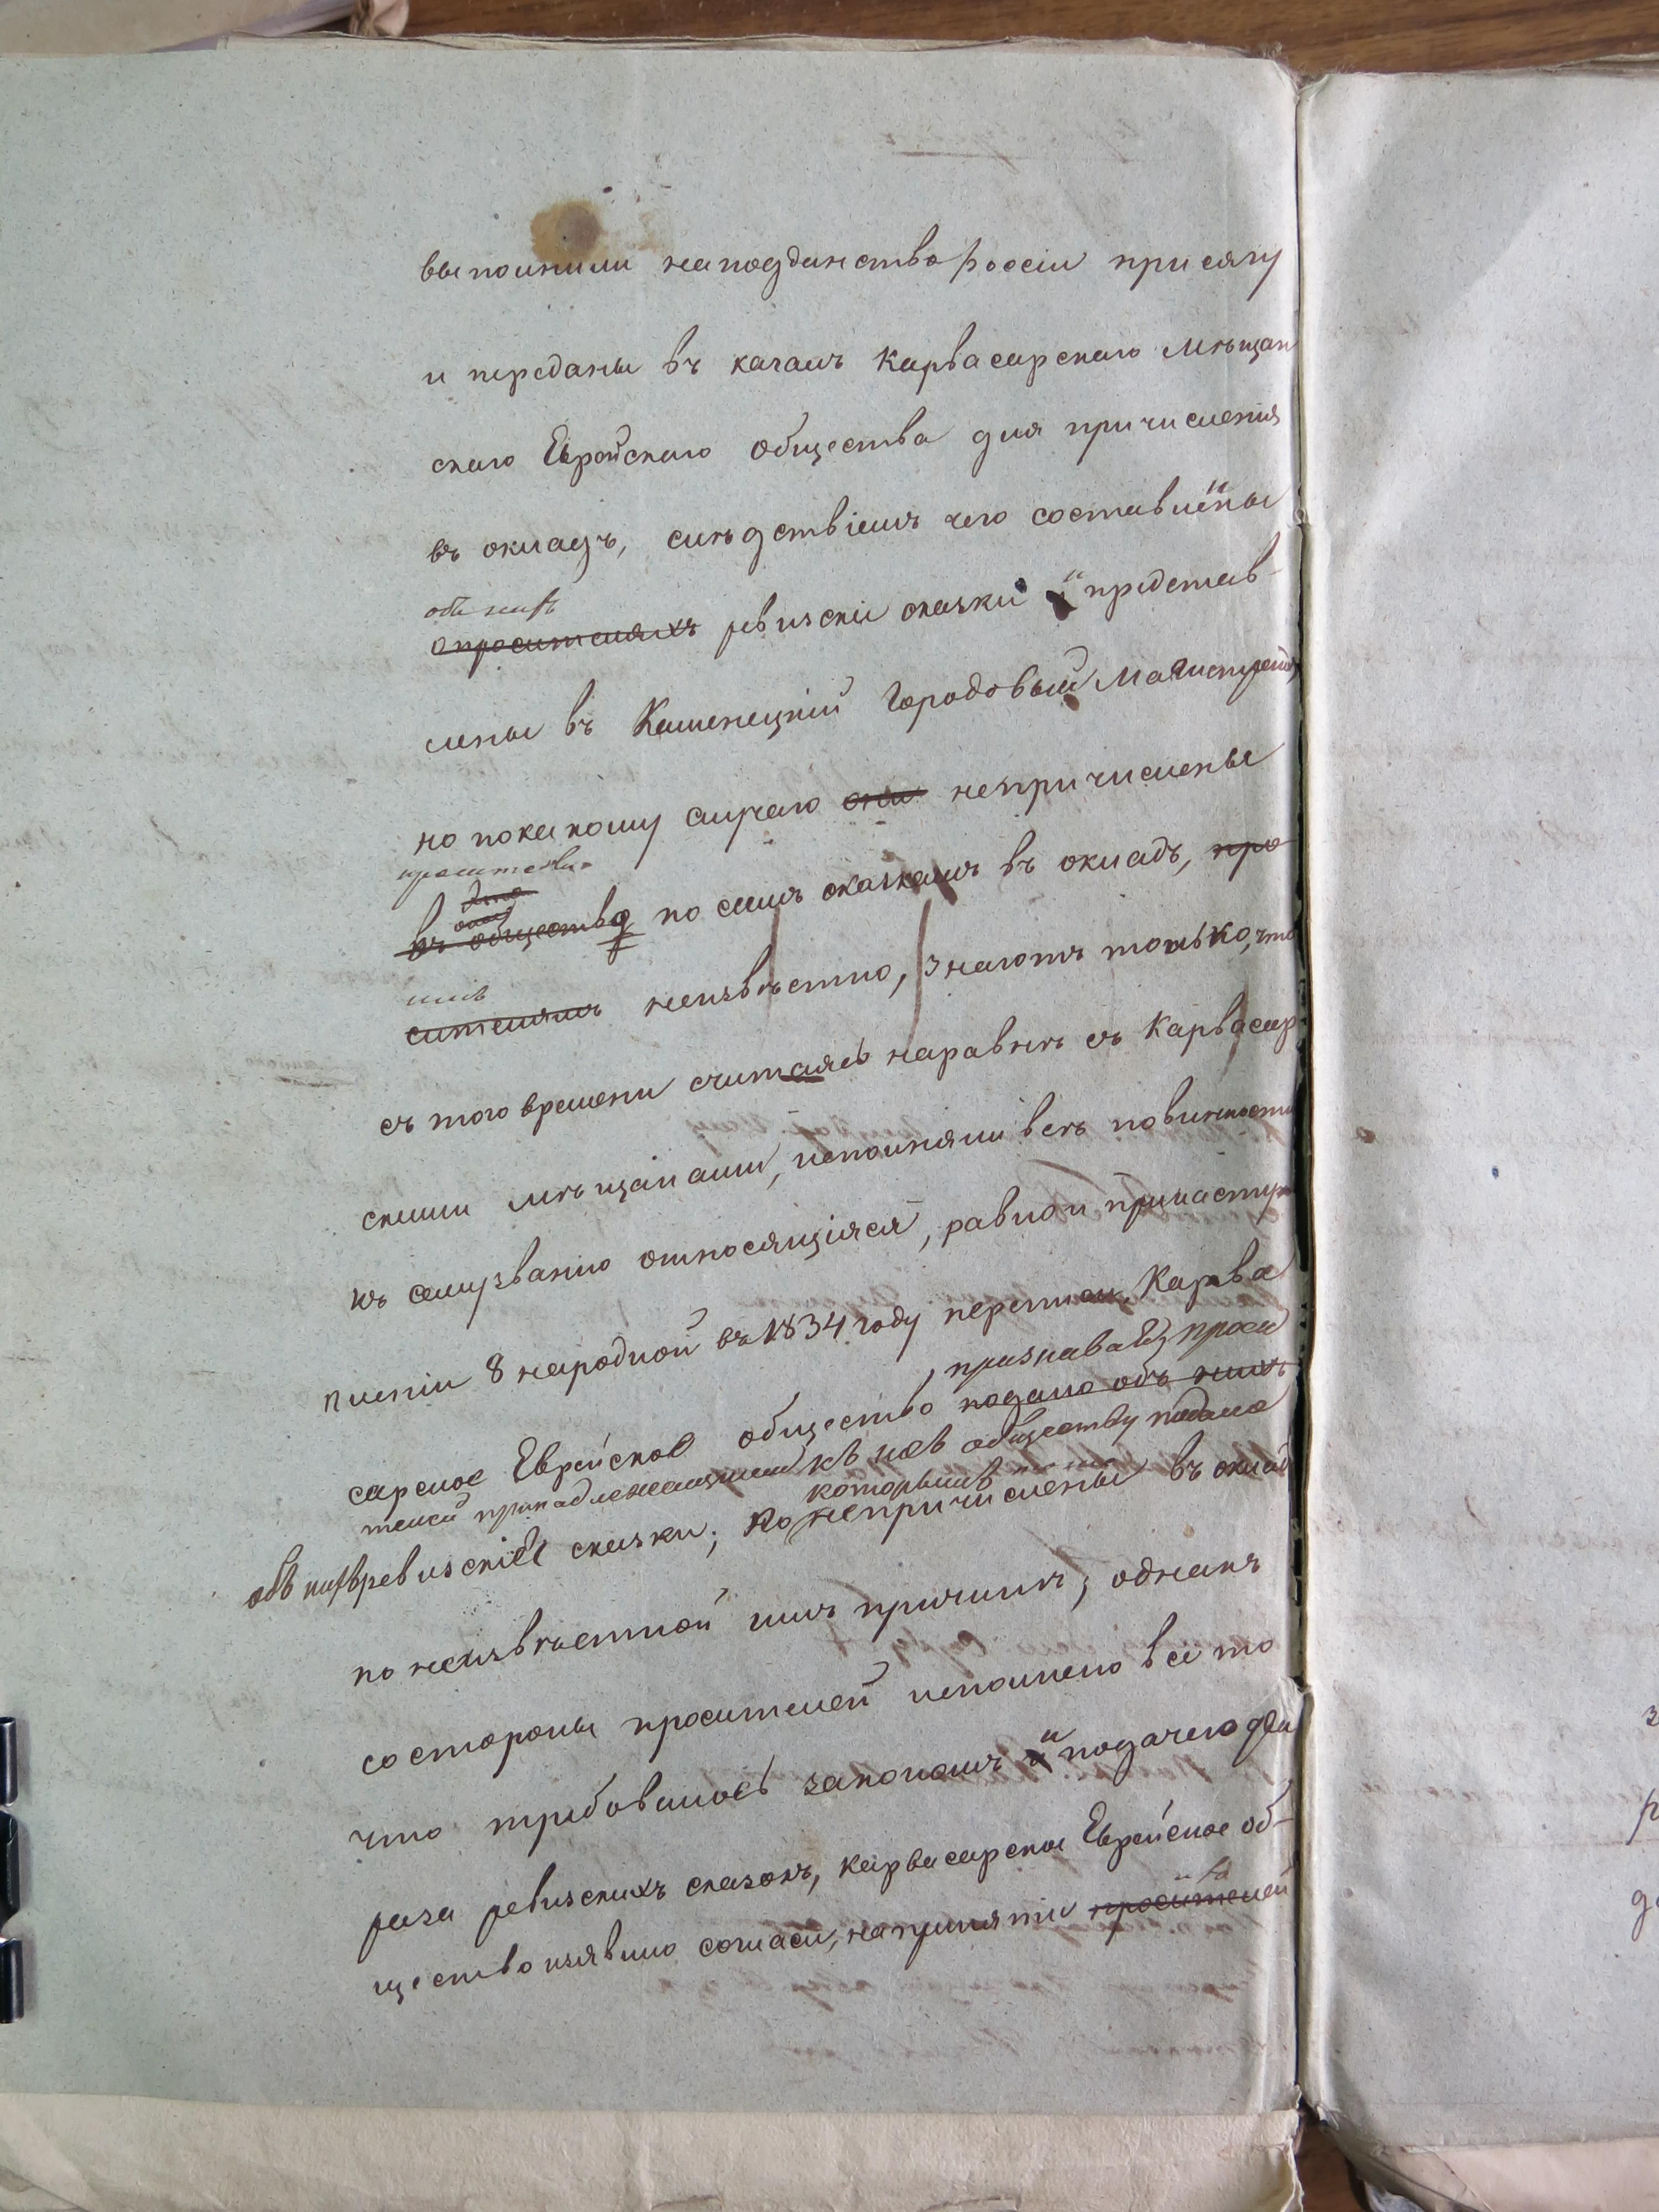 выполнили наподданство Россіи присягу
и переданы въ кагалъ Карвасарскаго Мѣщан
скаго Еврейскаго общества для причисленія
въ окладъ, слѣдствіемъ чего составлены
объ нихъ
опросителяхъ ревизскіи сказки и представ-
лены въ Каменецкій Городовый Магистратъ,
но покакому случаю они непричислены
просители
въ общество по симъ сказкамъ въ окладъ, про
имъ
сителямъ неизвѣстно, знаютъ только, что
съ того времени считаясь наравнѣ съ Карвасар
скими мѣщанами, исполняли всѣ повинности
къ семузванію относящіяся, равно и принаступ
пленіи 8 народной въ 1834 году переписи, Карва
признавая просі
сарское Еврейское общество подало объ нихъ
телей принадлежащими къ ихъ обществу подало
которымъ
объ нихъ ревизскіе сказки; но непричислены въ окладъ
по неизвѣстной имъ причинѣ; однакъ
состороны просителей исполнено все то
что требовалось закономъ и подачею два
раза ревизскихъ сказокъ, Карвасарское Еврейское об-
ихъ
щество изявило согласіе, напринятіи просителей